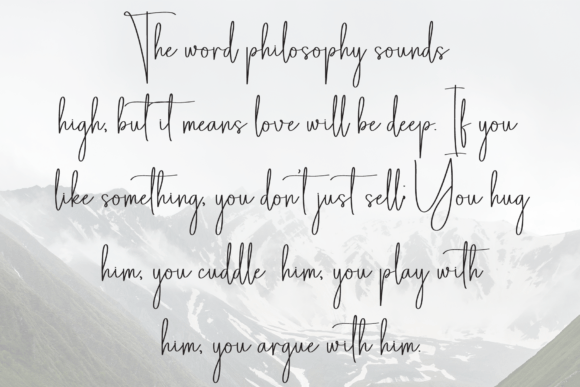 The word philosophy sounds
high, but it means love will be deep. If you
like something, you don't just sell; You hug
him, you cuddle him, you play with
him, you argue with him.